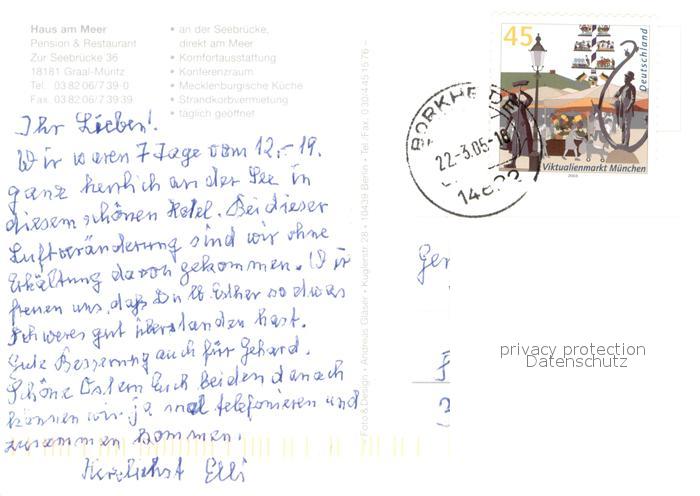 Haus am Meer
Pension & Restaurant
Zur Seebrücke 36
18181 Graal-Müritz
Tel. 03 82 06/7 39-0
Fax. 03 82 06/7 39 39
• an der Seebrücke,
direkt am Meer
• Komfortausstattung
• Konferenzraum
• Mecklenburgische Küche
• Strandkorbvermietung
• täglich geöffnet
Ihr Lieben!
Wir waren 7 Tage vom 12.-19.
ganz herrlich an der See in
diesem schönen Hotel. Bei dieser
Luftveränderung sind wir ohne
Erkältung davon gekommen. Wir
freuen uns, daß Du lb Esther so etwas
Schweres gut überstanden hast.
Gute Besserung auch für Gehard.
Schöne Ostern Euch beiden danach
können wir ja mal telefonieren und
zusammen kommen.
Herzlichst Elli
Foto & Design • Andreas Gläser • Kuglerstr. 28 • 10439 Berlin • Tel./Fax. 030/445 15 76
45
Deutschland
Viktualienmarkt München
2003
BORKHEIDE
22-3.05-18
privacy protection
Datenschutz